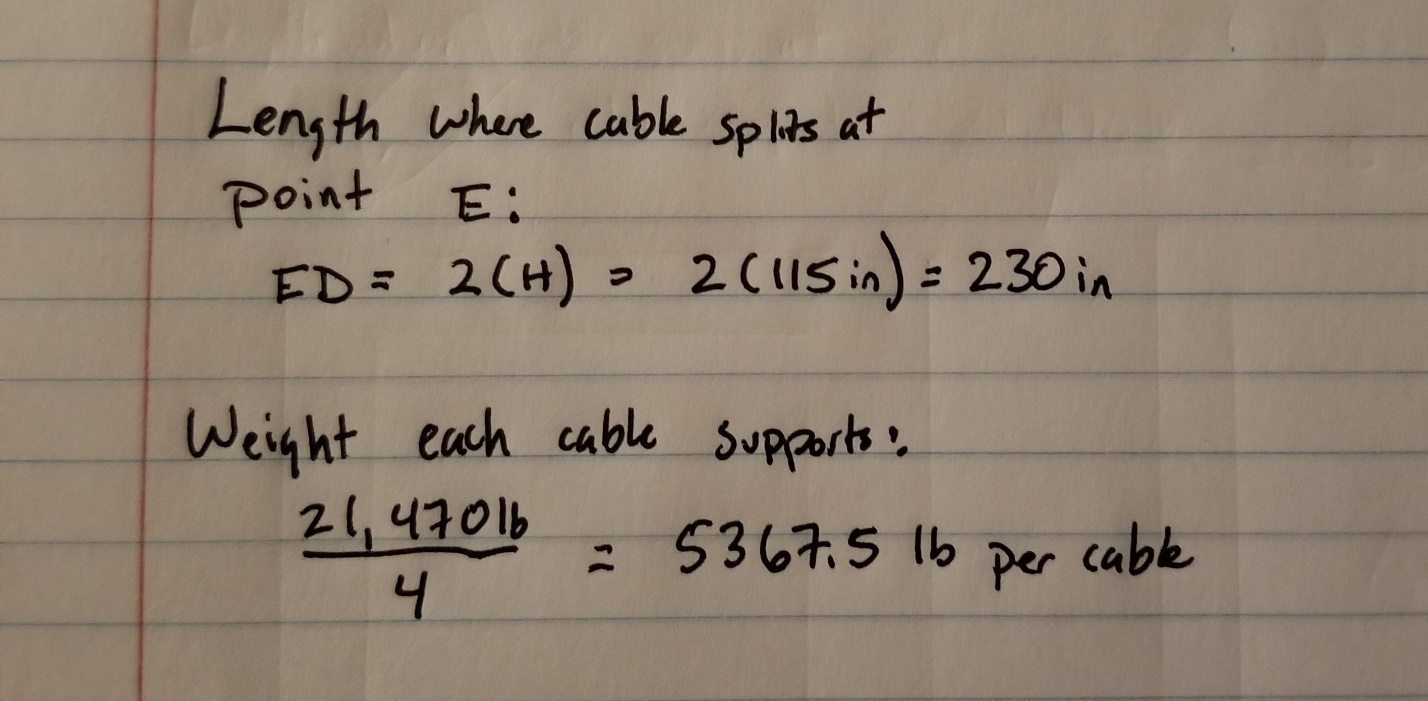 Length where cable splits at
point E:
ED = 2(H) = 2(115in) = 230in
Weight each cable supports:
21,470lb
4
= 5367.5 lb per cable